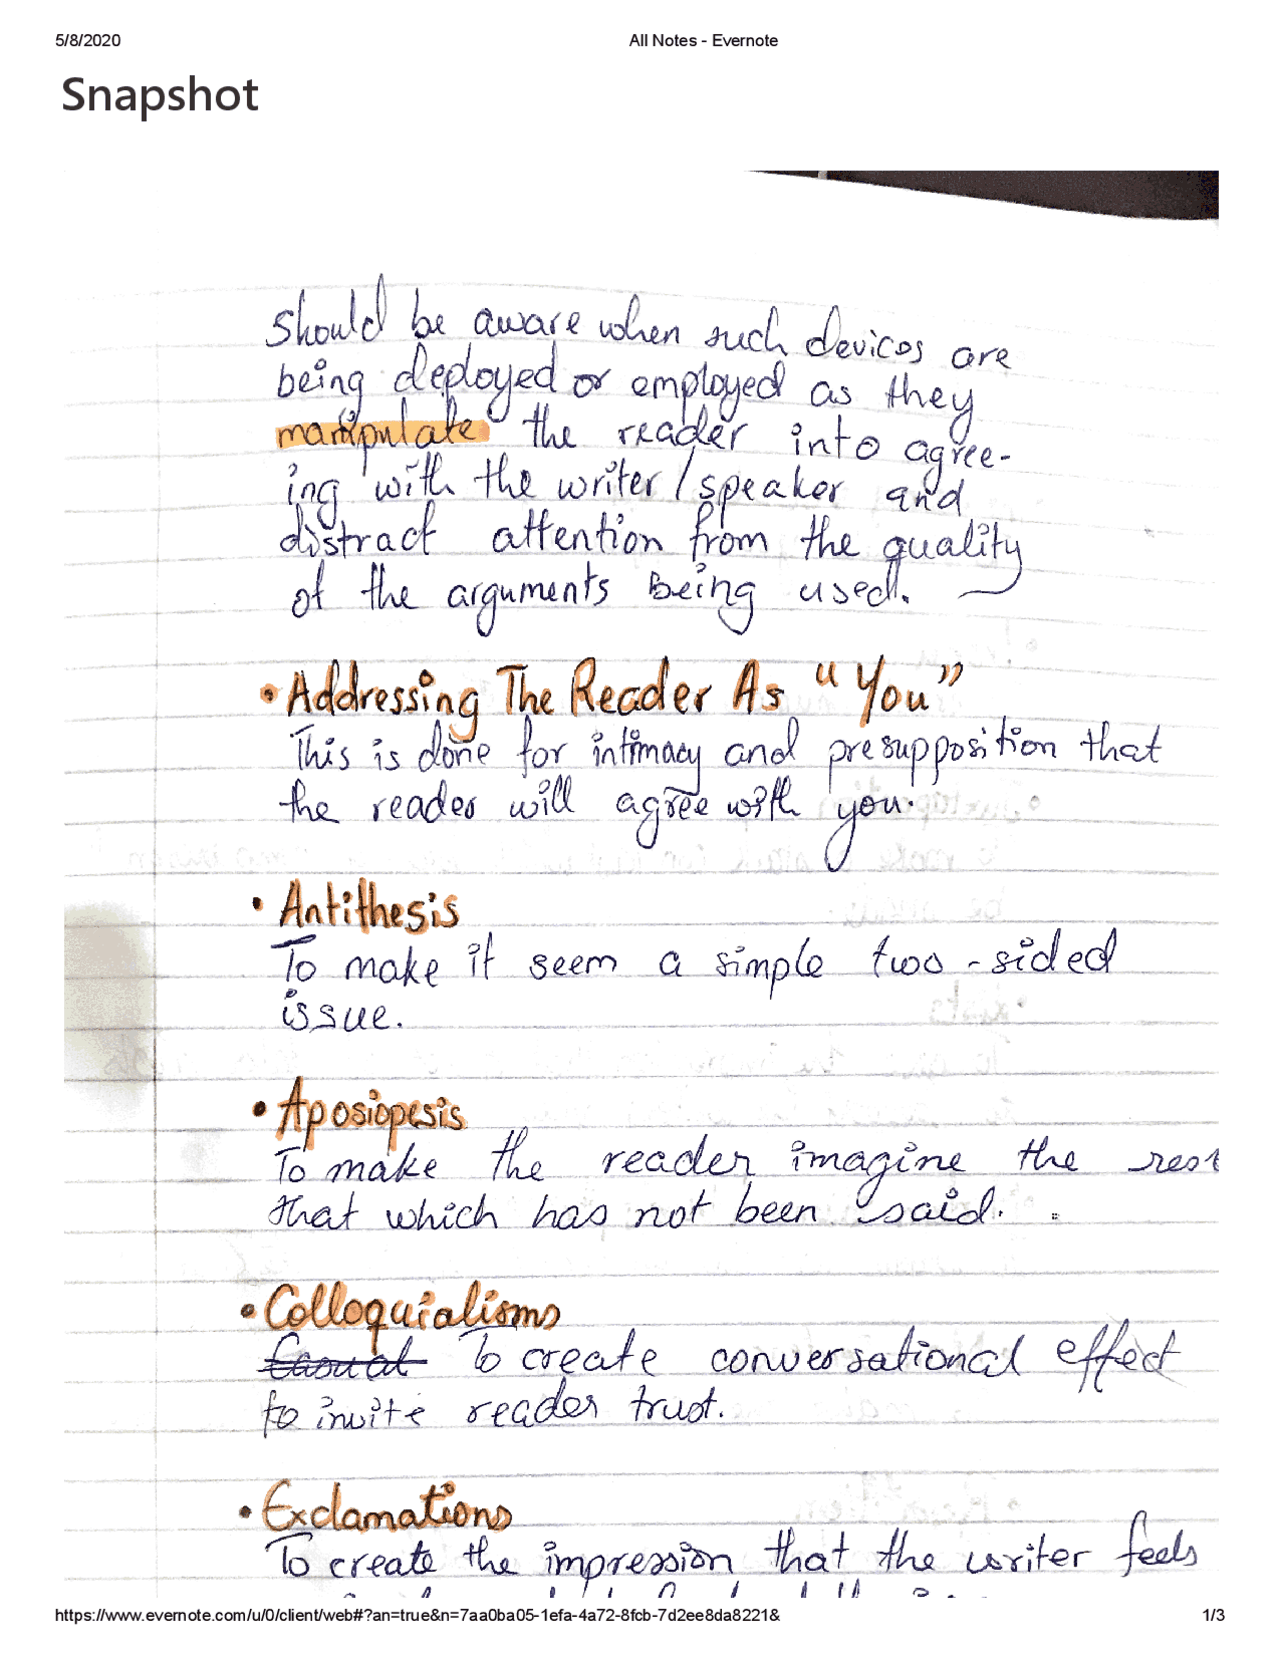 5/8/2020
All Notes - Evernote
Snapshot
should be aware when such devices are
being deployed or employed as they
manipulate the reader into agree-
ing with the writer / speaker and
distract attention from the quality
of the arguments being used.
• Addressing The Reader As "You"
This is done for intimacy and presupposition that
the reader will agree with you.
• Antithesis
To make it seem a simple two-sided
issue.
• Aposiopesis
To make the reader imagine the rest
that which has not been said.
• Colloquialisms
Casual To create conversational effect
to invite reader trust.
• Exclamations
To create the impression that the writer feels
https://www.evernote.com/u/0/client/web#?an=true&n=7aa0ba05-1efa-4a72-8fcb-7d2ee8da8221&
1/3